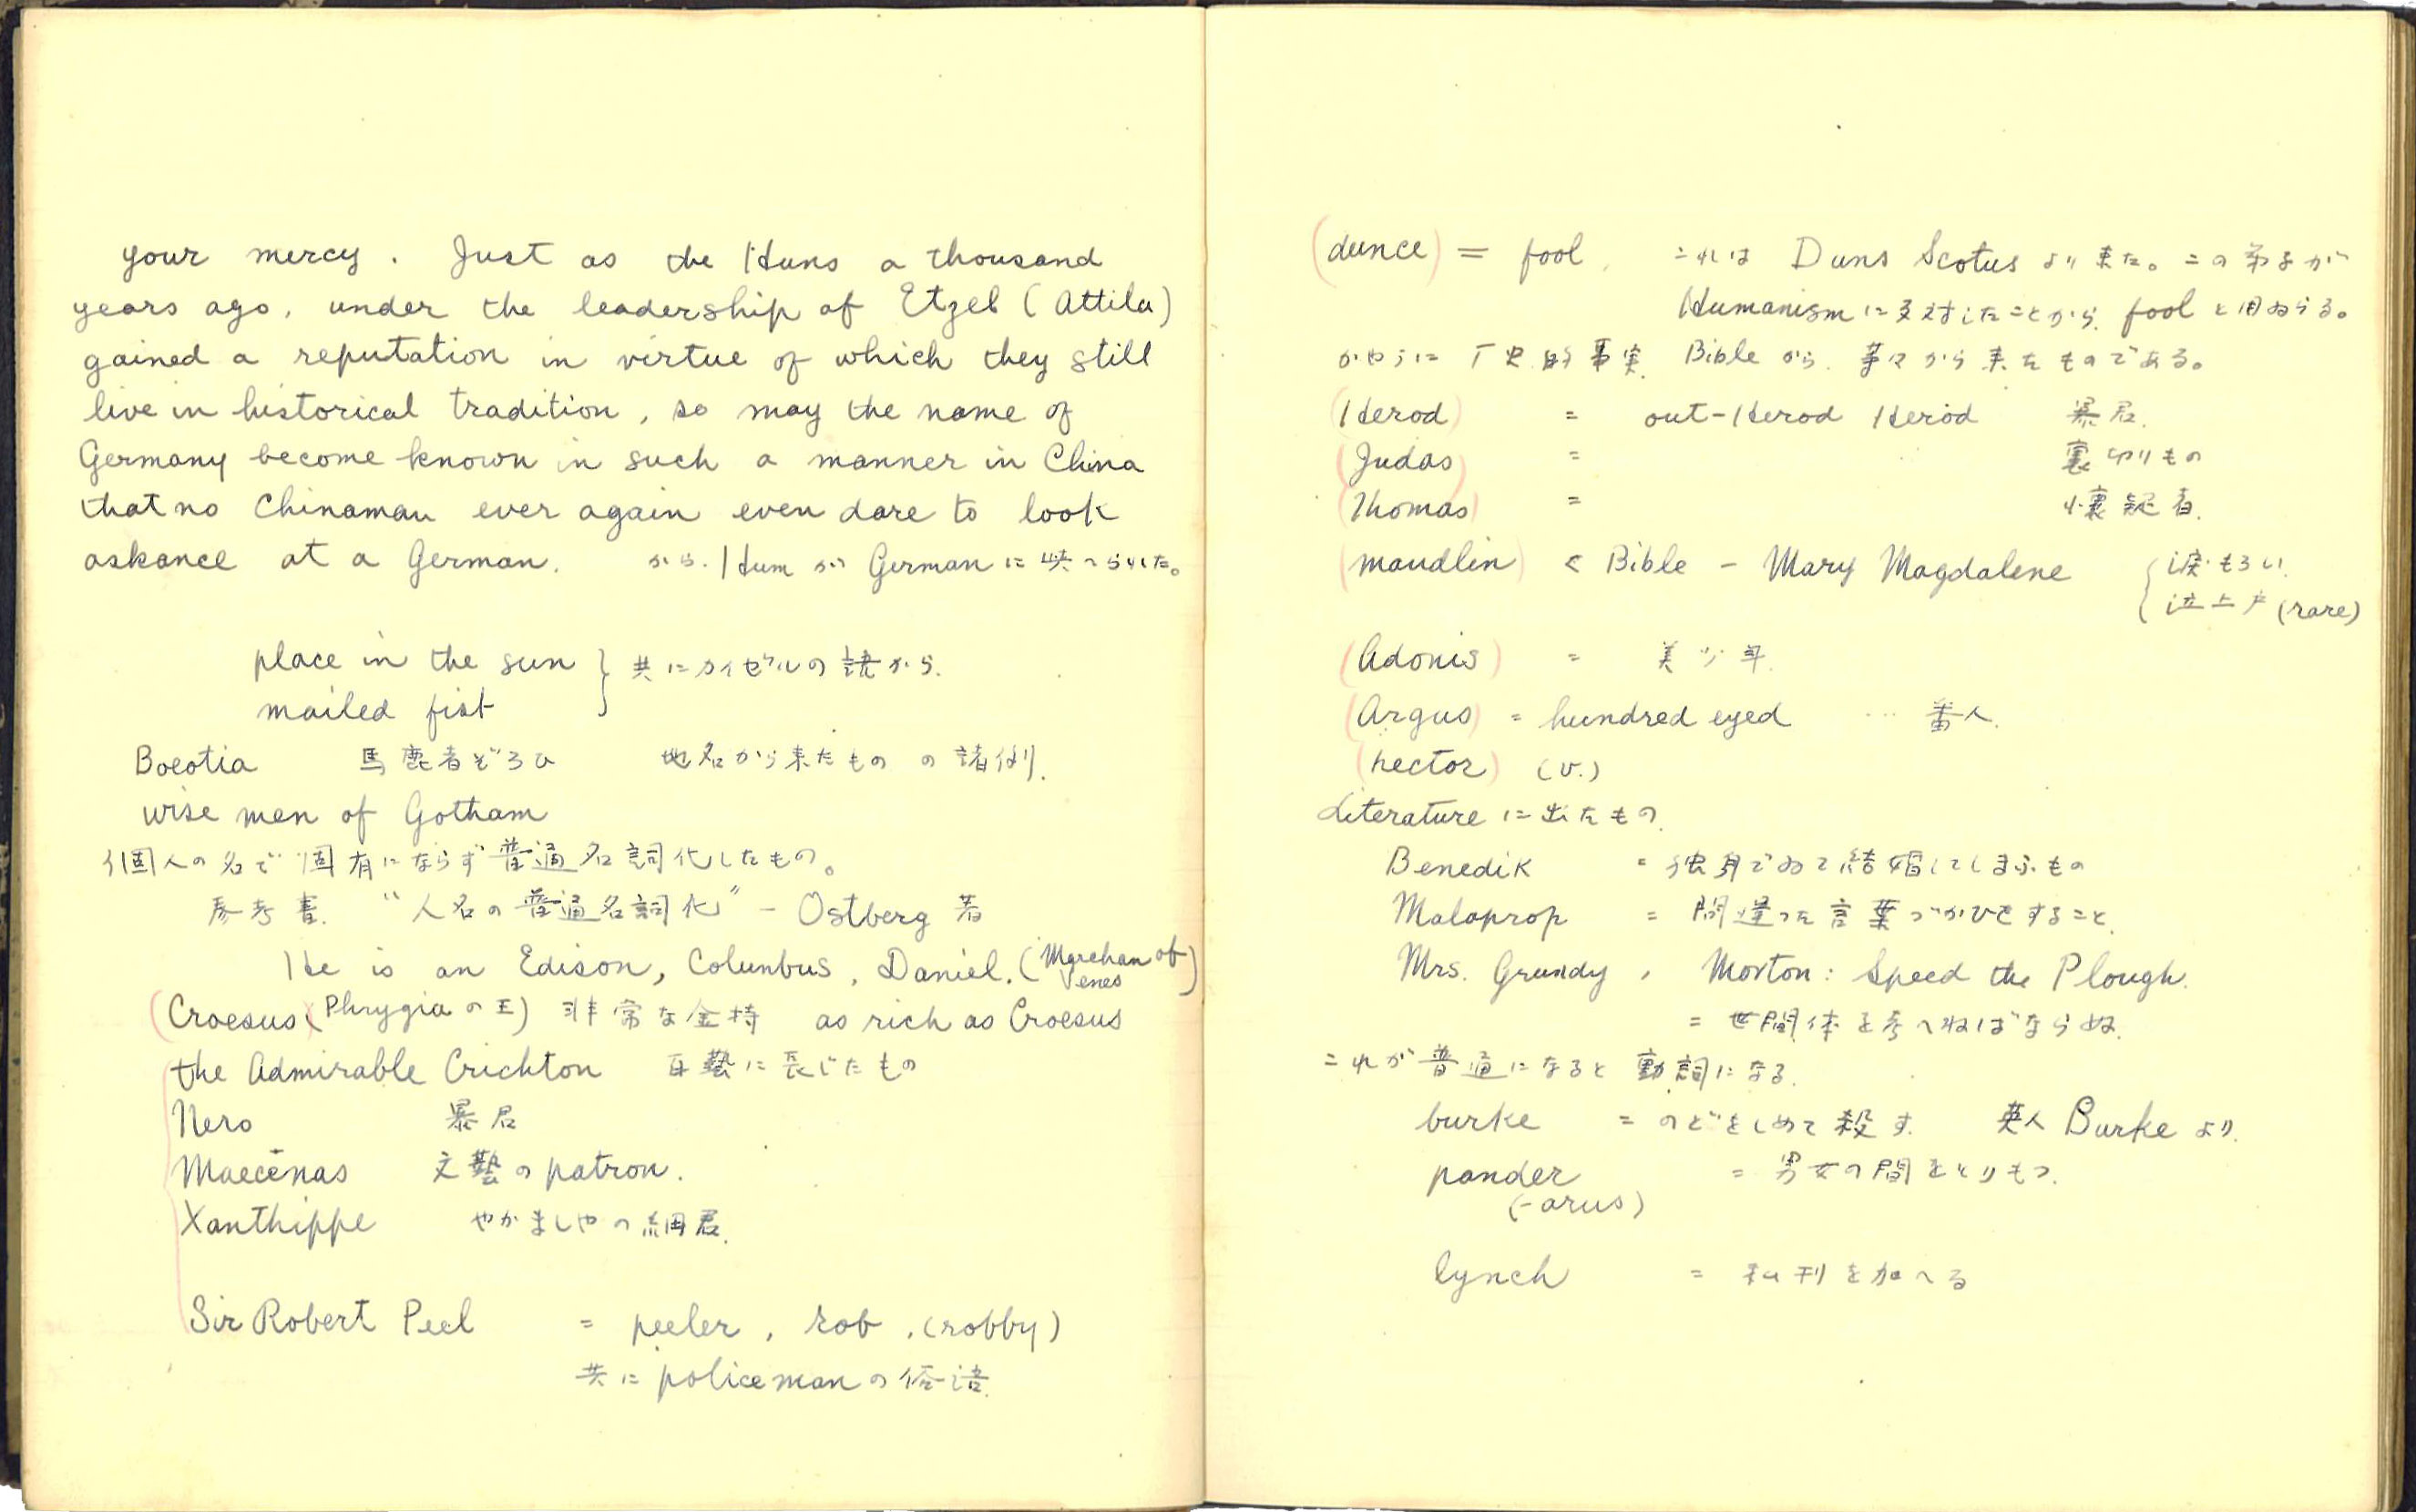 your mercy. Just as the Huns a thousand
years ago, under the leadership of Etzel (Attila)
gained a reputation in virtue of which they still
live in historical tradition, so may the name of
Germany become known in such a manner in China
that no Chinaman ever again even dare to look
askance at a German. から. Hun が German に 映へられた。
place in the sun } 共にカイゼルの語から.
mailed fist
Boeotia 馬鹿者ぞろひ 地名から来たものの諸例.
wise men of Gotham
個人の名で固有にならず普通名詞化したもの。
参考書. "人名の普通名詞化" - Ostberg 著
He is an Edison, Columbus, Daniel. (Merchan of Venes)
(Croesus) (Phrygia の王) 非常な金持 as rich as Croesus
the Admirable Crichton 百藝に長じたもの
Nero 暴君
Maecenas 文藝の patron.
Xanthippe やかましやの細君.
Sir Robert Peel = peeler, rob, (robby)
共に policeman の俗語.
(dunce) = fool, これは Duns Scotus より来た。この弟子が
Humanism に反対したことから, fool と用ゐらる。
かやうに 史的事実, Bible から, 等々から来たものである。
(Herod) = out-Herod Herod 暴君.
(Judas) = 裏切りもの
(Thomas) = 懐疑者.
(maudlin) < Bible - Mary Magdalene { 涙もろい.
泣上戸 (rare)
(Adonis) = 美少年.
(Argus) = hundred eyed … 番人.
(hector) (v.)
Literature に出たもの.
Benedik = 独身でゐて結婚してしまふもの
Malaprop = 間違った言葉づかひをすること.
Mrs. Grundy, Morton: Speed the Plough.
= 世間体を考へねばならぬ.
これが普通になると動詞になる.
burke = のどをしめて殺す. 英人 Burke より.
pander = 男女の間をとりもつ.
(-arus)
lynch = 私刑を加へる